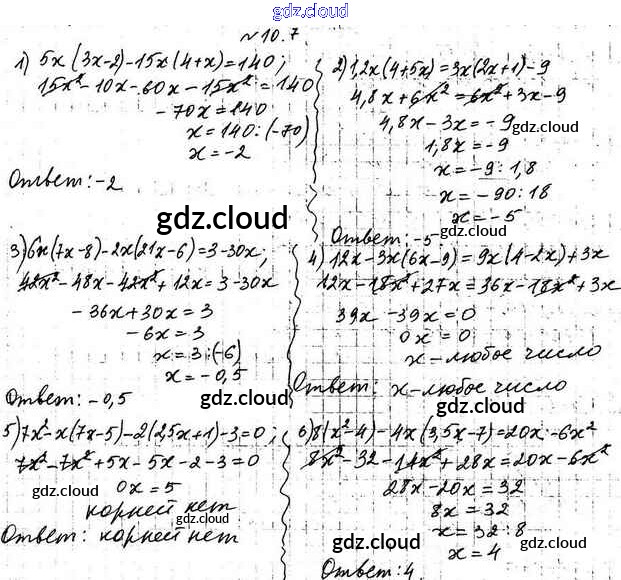 gdz.cloud
№ 10.7.
1) 5x(3x-2)-15x(4+x)=140;
15x²-10x-60x-15x²=140
-70x=140
x=140:(-70)
x=-2
Ответ: -2
2) 1,2x(4+5x)=3x(2x+1)-9
4,8x+6x²=6x²+3x-9
4,8x-3x=-9
gdz.cloud
1,8x=-9
x=-9:1,8
x=-90:18
gdz.cloud
x=-5
Ответ: -5
gdz.cloud
3) 6x(7x-8)-2x(21x-6)=3-30x;
42x²-48x-42x²+12x=3-30x
-36x+30x=3
-6x=3
x=3:(-6)
x=-0,5
Ответ: -0,5
gdz.cloud
4) 12x-3x(6x-9)=9x(4-2x)+3x
12x-18x²+27x=36x-18x²+3x
39x-39x=0
0x=0
x-любое число
Ответ: x-любое число
gdz.cloud
5) 7x²-x(7x-5)-2(2,5x+1)-3=0;
7x²-7x²+5x-5x-2-3=0
0x=5
gdz.cloud
корней нет
gdz.cloud
Ответ: корней нет
6) 8(x²-4)-4x(3,5x-7)=20x-6x²
8x²-32-14x²+28x=20x-6x²
28x-20x=32
gdz.cloud
8x=32
x=32:8
x=4
gdz.cloud
gdz.cloud
Ответ: 4